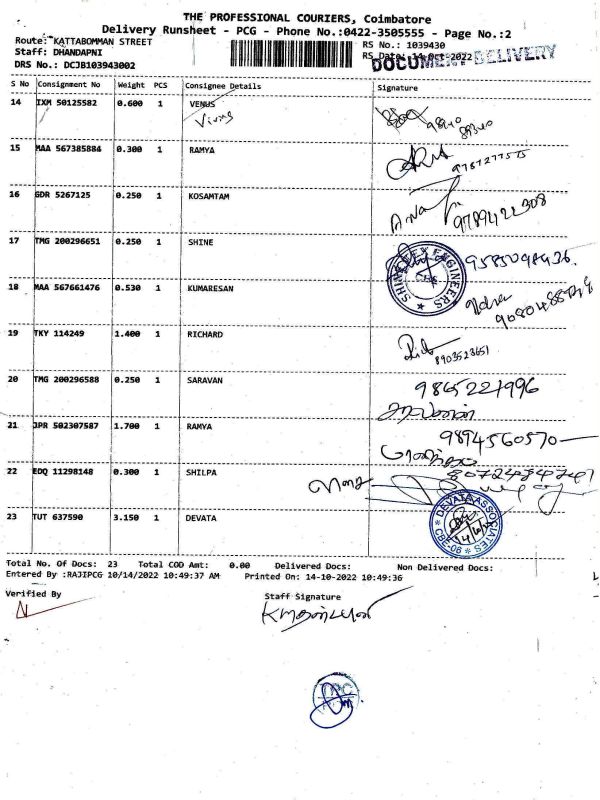 THE PROFESSIONAL COURIERS, Coimbatore
Delivery Runsheet - PCG - Phone No.:0422-3505555 - Page No.:2
Route: KATTABOMMAN STREET RS No.: 1039430
Staff: DHANDAPNI RS Date: 14-Oct-2022
DOCUMENT DELIVERY
DRS No.: DCJB103943002
S No Consignment No Weight PCS Consignee Details Signature
14 IXM 50125582 0.600 1 VENUS
15 MAA 567385884 0.300 1 RAMYA
16 GDR 5267125 0.250 1 KOSAMTAM
9789422308
17 TMG 200296651 0.250 1 SHINE
ENGINEERS
18 MAA 567661476 0.530 1 KUMARESAN
19 TKY 114249 1.400 1 RICHARD
8903523651
20 TMG 200296588 0.250 1 SARAVAN
9865221996
சரவணன்
21 JPR 502307587 1.700 1 RAMYA
9894560570
22 EDQ 11298148 0.300 1 SHILPA
23 TUT 637590 3.150 1 DEVATA
DEVATA ASSOCIATES
CBE-06
Total No. Of Docs: 23 Total COD Amt: 0.00 Delivered Docs: Non Delivered Docs:
Entered By :RAJIPCG 10/14/2022 10:49:37 AM Printed On: 14-10-2022 10:49:36
Verified By Staff Signature